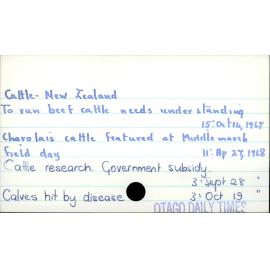 Cattle - New Zealand
To run beef cattle needs understanding
15: Oct 14, 1967
Charolais cattle featured at Middlemarch
field day 11: Ap 27, 1968
Cattle research. Government subsidy.
3: Sept 28 "
Calves hit by disease 3: Oct 19 "
OTAGO DAILY TIMES